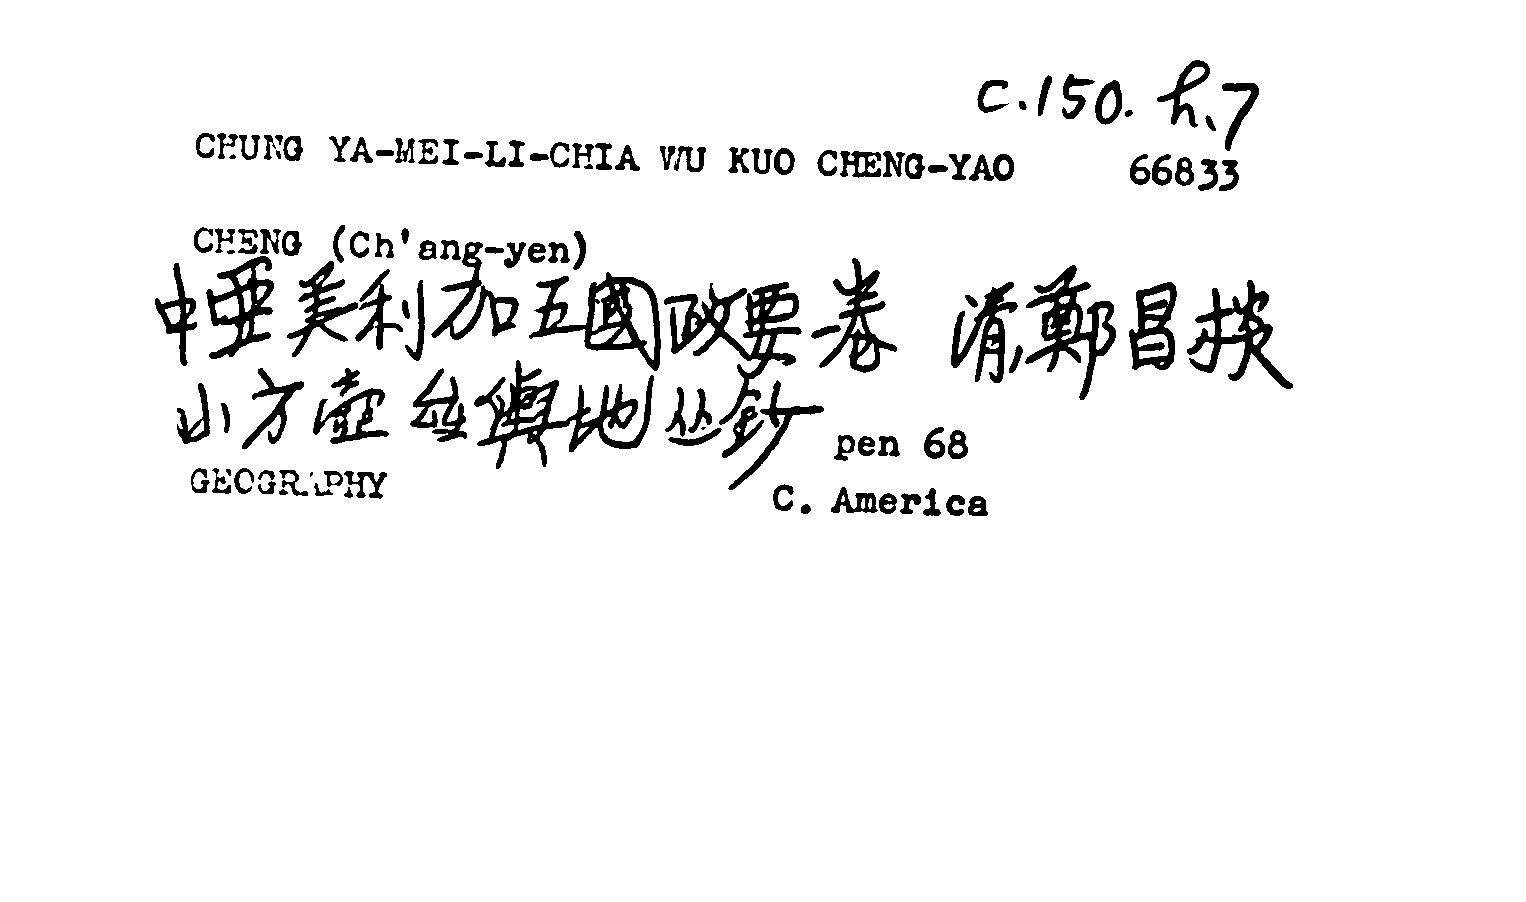 C.150. h.7
CHUNG YA-MEI-LI-CHIA WU KUO CHENG-YAO 66833
CHENG (Ch'ang-yen)
中亜美利加五國政要一卷 清鄭昌棪
小方壺齋輿地丛鈔 pen 68
GEOGRAPHY C. America